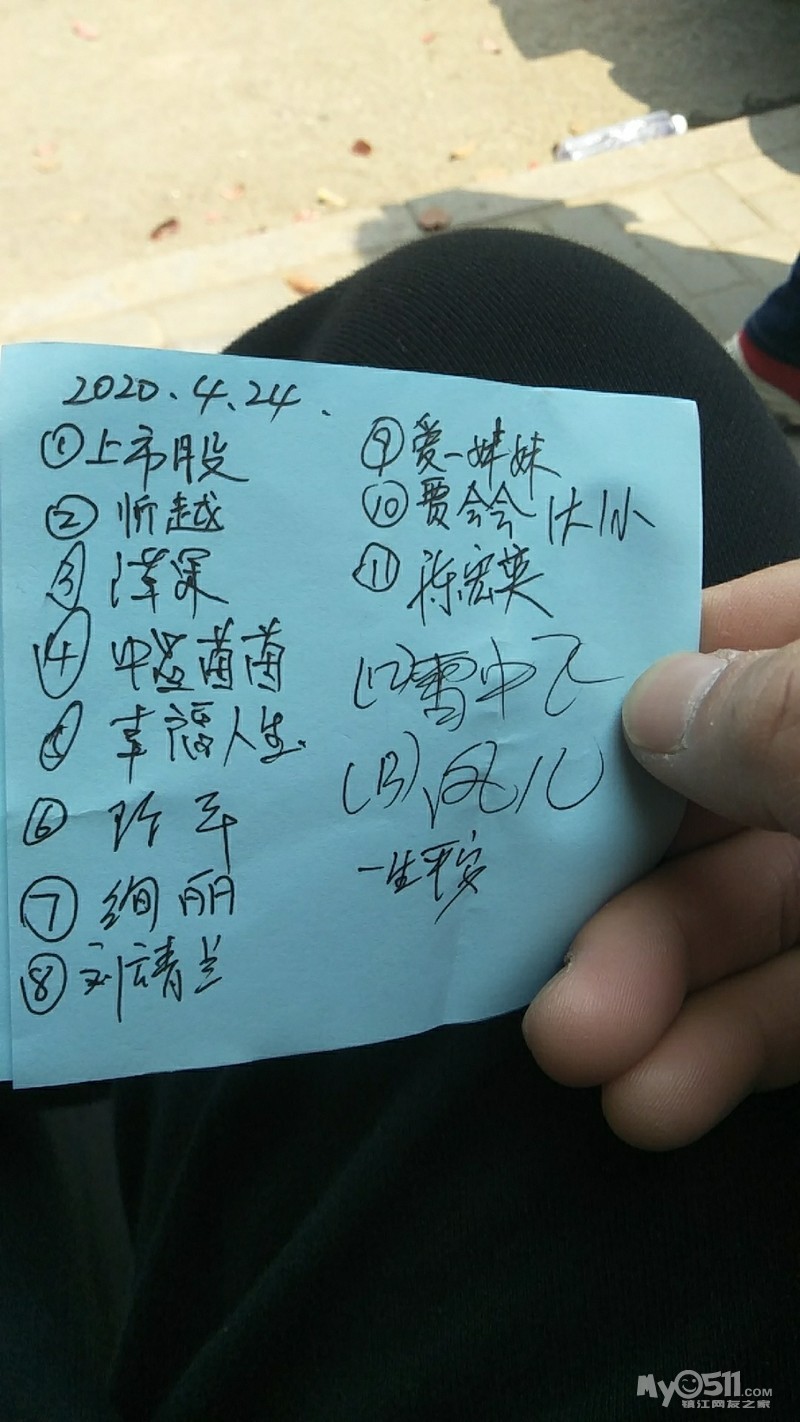 2020.4.24.
①上市股
②忻越
③
④中意茵茵
⑤幸福人生.
⑥玲平
⑦绚丽
⑧刘请兰
⑨爱一妹妹
⑩贾会会 1大1小
⑪陈宏英
(12)雪中飞
(13)风儿
一生平安
My0511.COM
镇江网友之家